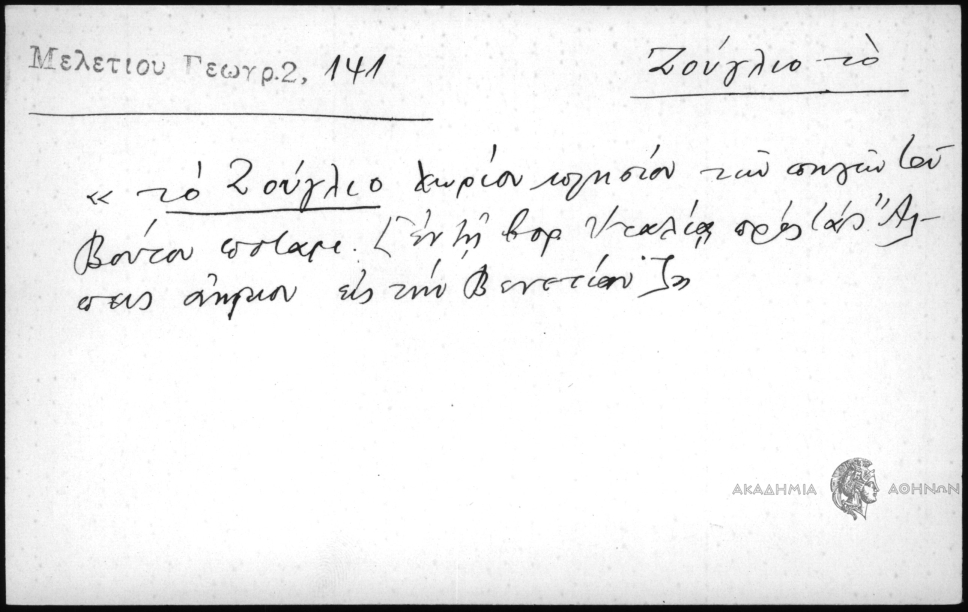 Μελετίου Γεωγρ.2, 141
Ζούγλιο τὸ
« τὸ Ζούγλιο χωρίον πλησίον τῶν πηγῶν τοῦ
Βούτου ποταμ. [ἐν τῇ βορ Ἰταλίᾳ πρὸς τὰς Ἄλ-
πεις ἀνῆκον εἰς τὴν Βενετίαν
ΑΚΑΔΗΜΙΑ ΑΘΗΝΩΝ